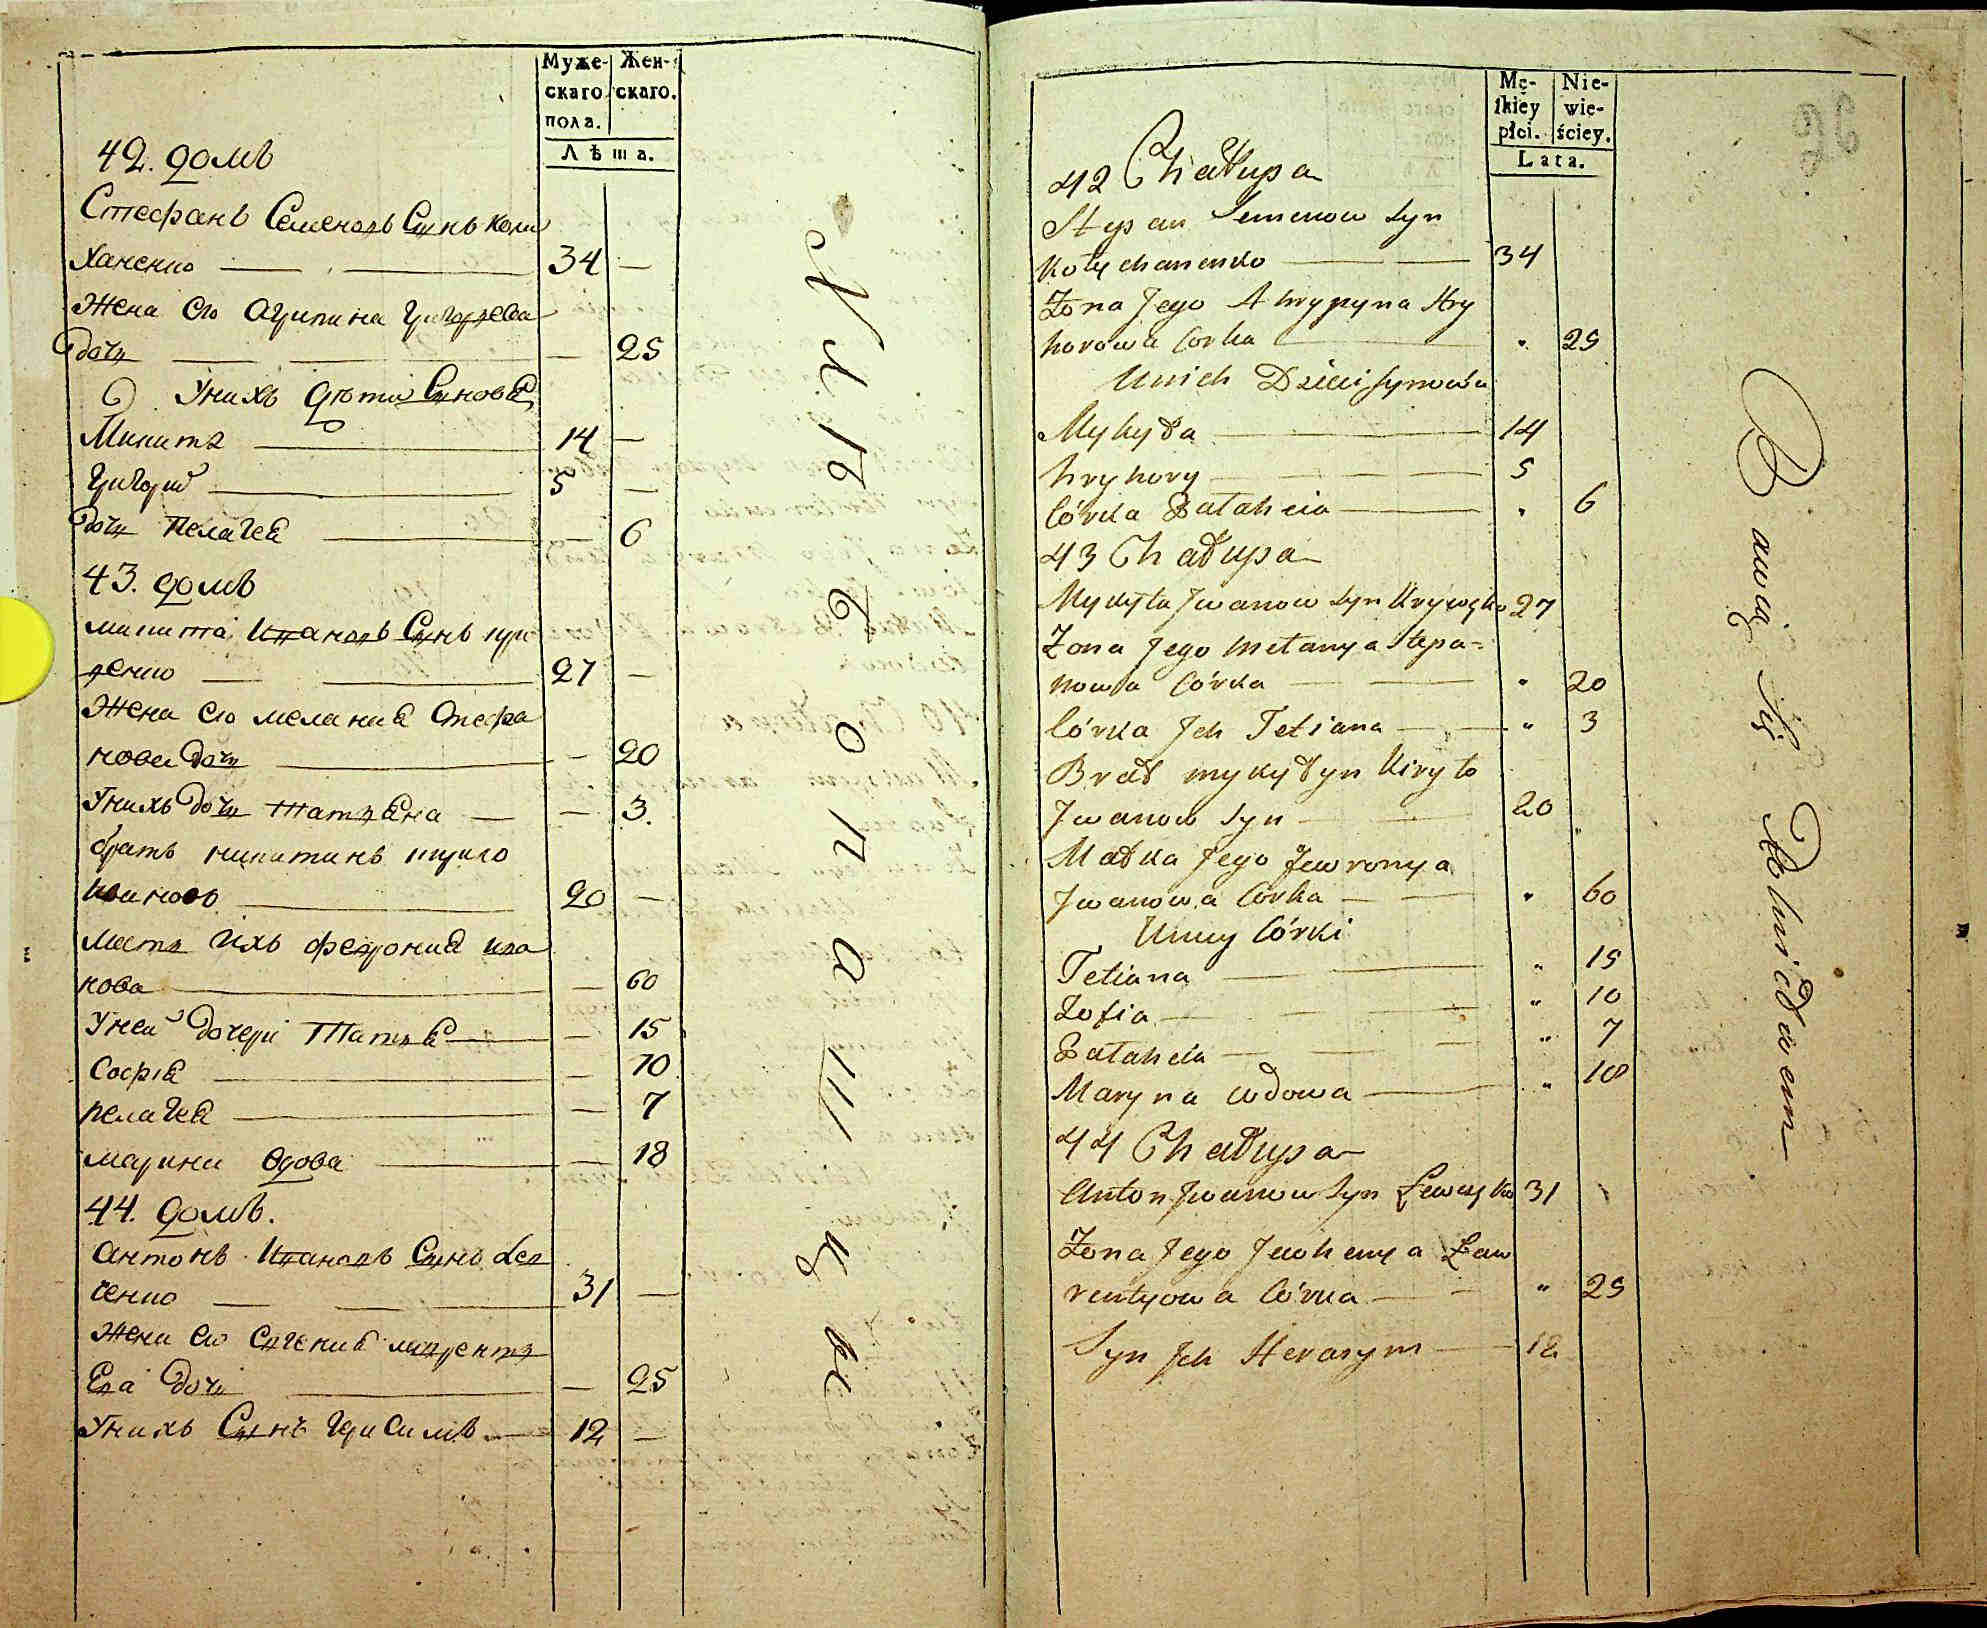 Муже-
скаго
пола.
Жен-
скаго.
Лѣта.
42. домъ
Стефанъ Семеновъ Сынъ Коли
ханенко 34 —
Жена его Агрипина Григорьева
дочь — 25
У нихъ дѣти Сыновья
Микита 14 —
Григорий 5 —
дочь Пелагея — 6
43. домъ
Микита Ивановъ Сынъ кри
венко 27 —
Жена его мелания Стефа
нова дочь — 20
У нихъ дочь Татьяна — 3.
братъ никитинъ кирило
Ивановъ 20 —
мать ихъ феврония ива
нова — 60
У ней дочери Татья — 15
Софья — 10
пелагея — 7
марина вдова — 18
44. домъ.
Антонъ Ивановъ Сынъ Лев
ченко 31 —
Жена его Евгения лаврентьева
дочь — 25
У нихъ Сынъ Герасимъ 12 —
хлѣбопашцы
Mę-
skiey
płci.
Nie-
wie-
ściey.
Lata.
42 Chałupa
Stypan Semenow Syn
Kołychanenko 34
Żona Jego Ahrypyna Hry
horowa Corka " 25
U nich Dzieci synowia
Mykyta 14
hryhory 5
Córka Pałaheia " 6
43 Chałupa
Mykyta Jwanow Syn Krywenko 27
Żona Jego Mełanya Stepa=
nowa Córka " 20
Córka Jch Tetiana " 3
Brat mykytyn Kiryło
Jwanow Syn 20 "
Matka Jego Jewronya
Jwanowa Corka " 60
U niey Córki
Tetiana " 15
Zofia " 10
Pałaheia " 7
Maryna wdowa " 18
44 Chałupa
Anton Jwanow Syn Lewczenko 31
Żona Jego Jewhenya Ław
rentyowa Córka " 25
Syn Jch Herasym 12
Bawią Się Rolnictwem